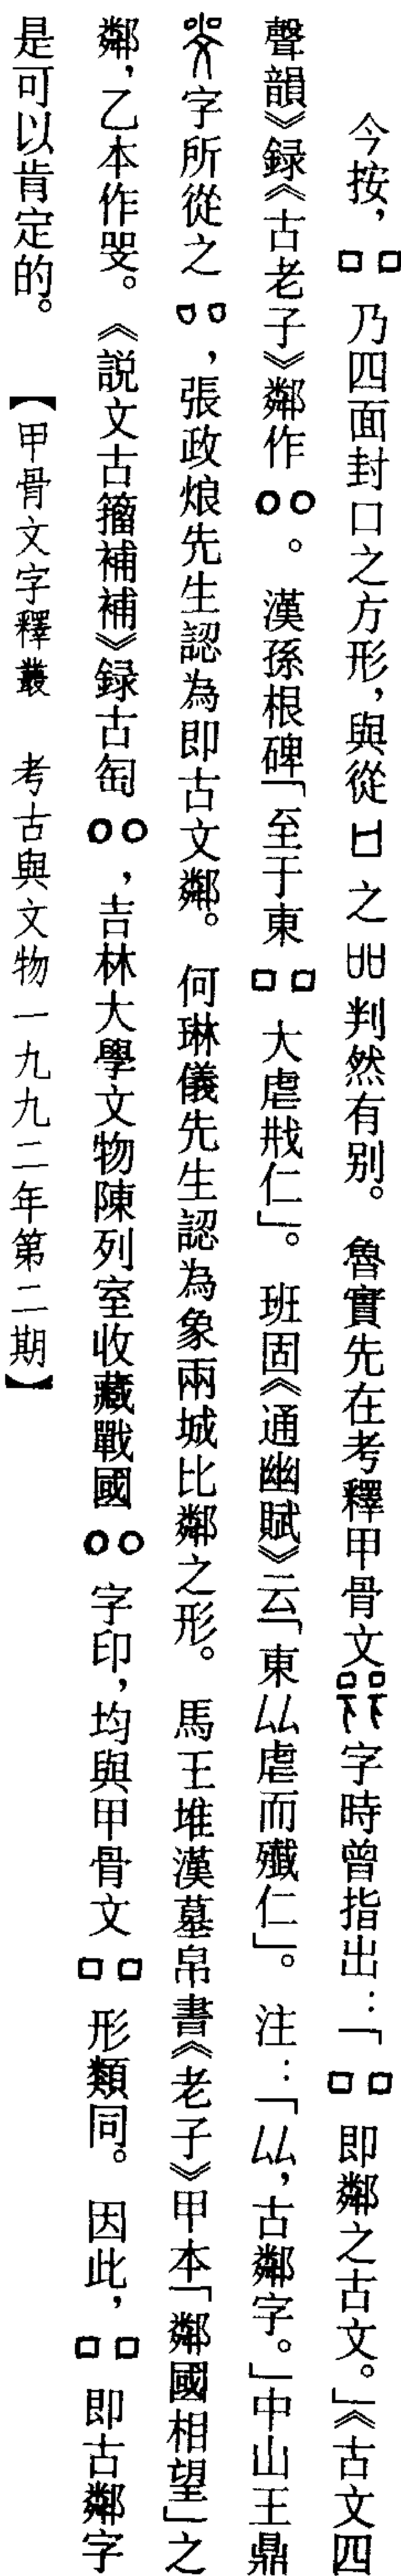 今按，□□乃四面封口之方形，與從ㅂ之㗊判然有别。魯實先在考釋甲骨文字時曾指出：「□□即鄰之古文。」《古文四
聲韻》録《古老子》鄰作○○。漢孫根碑「至于東□□大虐戕仁」。班固《通幽賦》云「東厸虐而殲仁」。注：「厸，古鄰字。」中山王鼎
字所從之○○，張政烺先生認為即古文鄰。何琳儀先生認為象兩城比鄰之形。馬王堆漢墓帛書《老子》甲本「鄰國相望」之
鄰，乙本作哭。《説文古籀補補》録古匋○○，吉林大學文物陳列室收藏戰國○○字印，均與甲骨文□□形類同。因此，□□即古鄰字
是可以肯定的。【甲骨文字釋叢　考古與文物一九九二年第二期】